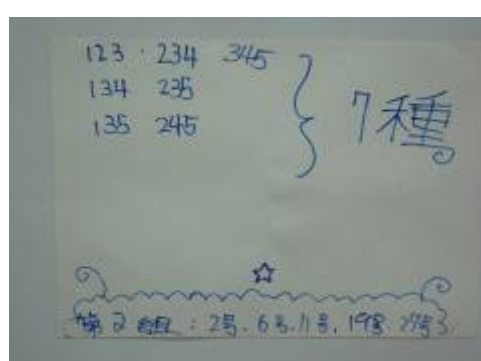 123 · 234 345
134 235
135 245
7種。
第2組:2号.6号.11号.19号.27号